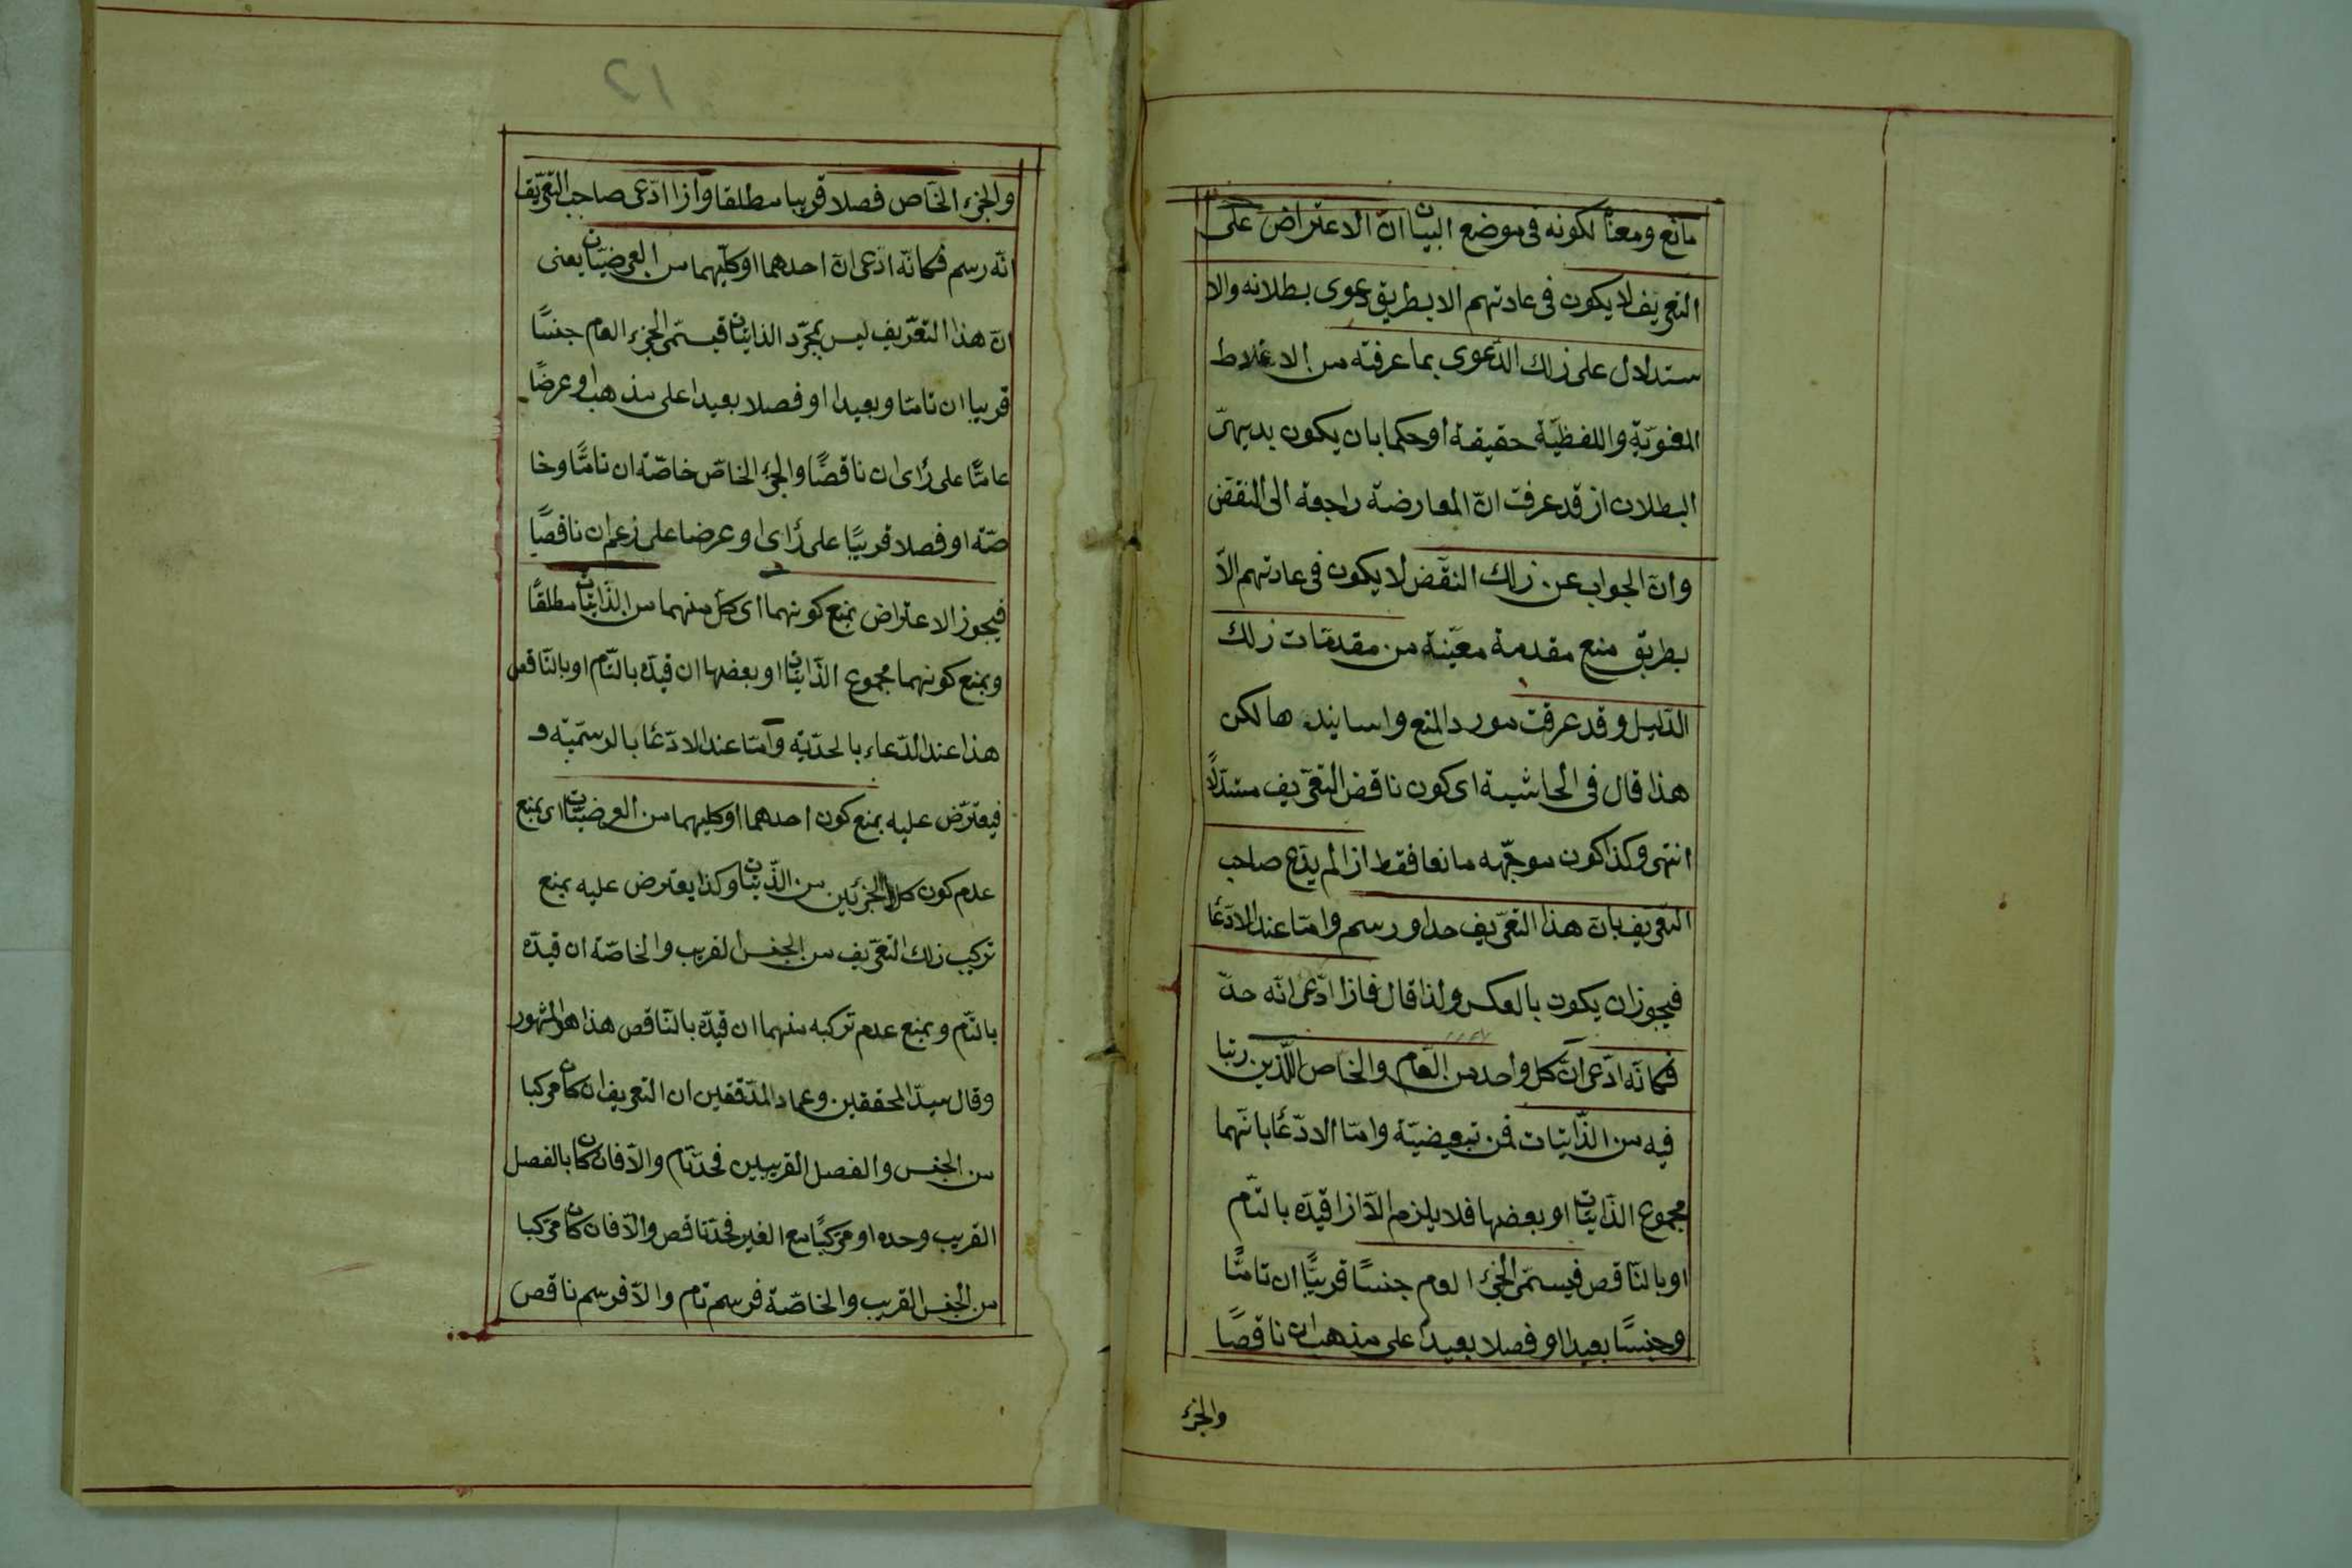 مانع ومعنا لكونه فى موضع البيان انّ الاعتراض على
التعريف لا يكون فى عادتهم الا بطريق دعوى بطلانه والا
ستدلال على ذلك الدّعوى بما عرفته من الاغلاط
المعنويّة واللفظيّة حقيقة او حكما بان يكون بديهىّ
البطلان اذ قد عرفت انّ المعارضة راجعة الى النقض
وانّ الجواب عن ذلك النقض لا يكون فى عادتهم الاّ
بطريق منع مقدمة معيّنة من مقدمات ذلك
الدّليل وقد عرفت مورد المنع واسانيدها لكن
هذا قال فى الحاشية اى كون ناقض التعريف مستدلاًّ
انتهى وكذا كون موجّهه مانعا فقط اذا لم يدّع صاحب
التعريف بانّ هذا التعريف حد او رسم وامّا عند الادّعا
فيجوز ان يكون بالعكس ولذا قال فاذا ادّعى انّه حدّ
فكانّه ادّعى انّ كل واحد من العام والخاص اللّذين ربّبا
فيه من الذّاتيّات فمن تبعيضيّة وامّا الادّعا بانّهما
مجموع الذّاتيّات او بعضها فلا يلزم الاّ اذا قيّده بالتّام
او بالنّاقص فيسمّى الجزء العام جنسًا قريبًا ان تامًّا
وجنسًا بعيدا او فصلا بعيدا على مذهب ان ناقصًا
والجزء
12
والجزء الخاص فصلا قريبا مطلقا واذا ادّعى صاحب التعريف
انّه رسم فكانّه ادّعى انّ احدهما او كليهما من العرضيّات يعنى
انّ هذا التعريف ليس بمجرّد الذاتيّات فيسمّى الجزء العام جنسًا
قريبا ان تامّا وبعيدا او فصلا بعيدا على مذهب او عرضًا
عامًّا على رأى ان ناقصًا والجزء الخاصّ خاصّة ان تامًّا وخا
صّة او فصلا قريبًا على رأى او عرضا على زعم ان ناقصًا
فيجوز الاعتراض بمنع كونهما اى كل منهما من الذّاتيّات مطلقًا
وبمنع كونهما مجموع الذّاتيّات او بعضها ان قيّده بالتّام او بالنّاقص
هذا عند الدّعاء بالحدّيّة وامّا عند الادّعا بالرسميّة و
فيعترض عليه بمنع كون احدهما او كليهما من العرضيّات اى بمنع
عدم كون كلا الجزئين من الذّاتيّات وكذا يعترض عليه بمنع
تركيب ذلك التعريف من الجنس القريب والخاصّة ان قيّده
بالتّام وبمنع عدم تركبه منهما ان قيّده بالنّاقص هذا هو المشهور
وقال سيدّ المحققين وعماد المدّققين ان التعريف ان كان مركبا
من الجنس والفصل القريبين فحدّ تام والاّ فان كان بالفصل
القريب وحده او مركبًا مع الغير فحدّ ناقص والاّ فان كان مركبا
من الجنس القريب والخاصّة فرسم تام والاّ فرسم ناقص